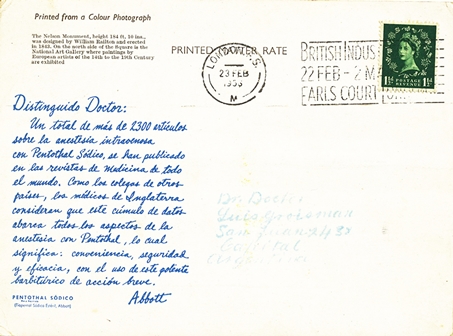 Printed from a Colour Photograph
The Nelson Monument, height 184 ft. 10 ins.,
was designed by William Railton and erected
in 1843. On the north side of the Square is the
National Art Gallery where paintings by
European artists of the 14th to the 19th Century
are exhibited
PRINTED PAPER RATE
LONDON
23 FEB
M
BRITISH INDUS
22 FEB - 2 M
EARLS COURT
POSTAGE
REVENUE
Distinguido Doctor:
Un total de más de 2300 artículos
sobre la anestesia intravenosa
con Pentothal Sódico, se han publicado
en las revistas de medicina de todo
el mundo. Como los colegas de otros
países, los médicos de Inglaterra
consideran que este cúmulo de datos
abarca todos los aspectos de la
anestesia con Pentothal, lo cual
significa: conveniencia, seguridad
y eficacia, con el uso de este potente
barbitúrico de acción breve.
Abbott
PENTOTHAL SÓDICO
Dr. Doctor
Luis Groisman
San Juan
Capital
Argentina